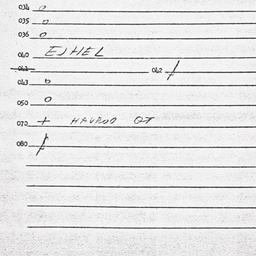 034 0
035 0
036 0
040 EJHEL
041 042 /
043 0
050 0
070 + HAVRUD OT
080 /